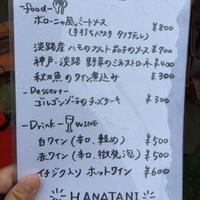 -food-
ボローニャ風ミートソース ¥800
(手打ちパスタ タリアテレ)
淡路産ハモのフルト 茄子のソース ¥700
神戸・淡路 野菜のミネストローネ ¥400
秋刀魚のワイン煮込み ¥300
-Dessert-
ゴルゴンゾーラのチーズケーキ ¥300
-Drink- WINE
白ワイン(辛口、軽め) ¥500
赤ワイン(辛口、微発泡) ¥500
イチジク入り ホットワイン ¥600
HANATANI